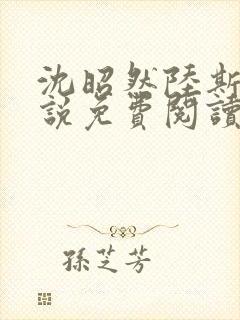 沈昭然陸斯
說免費閱讀
孫芝芳